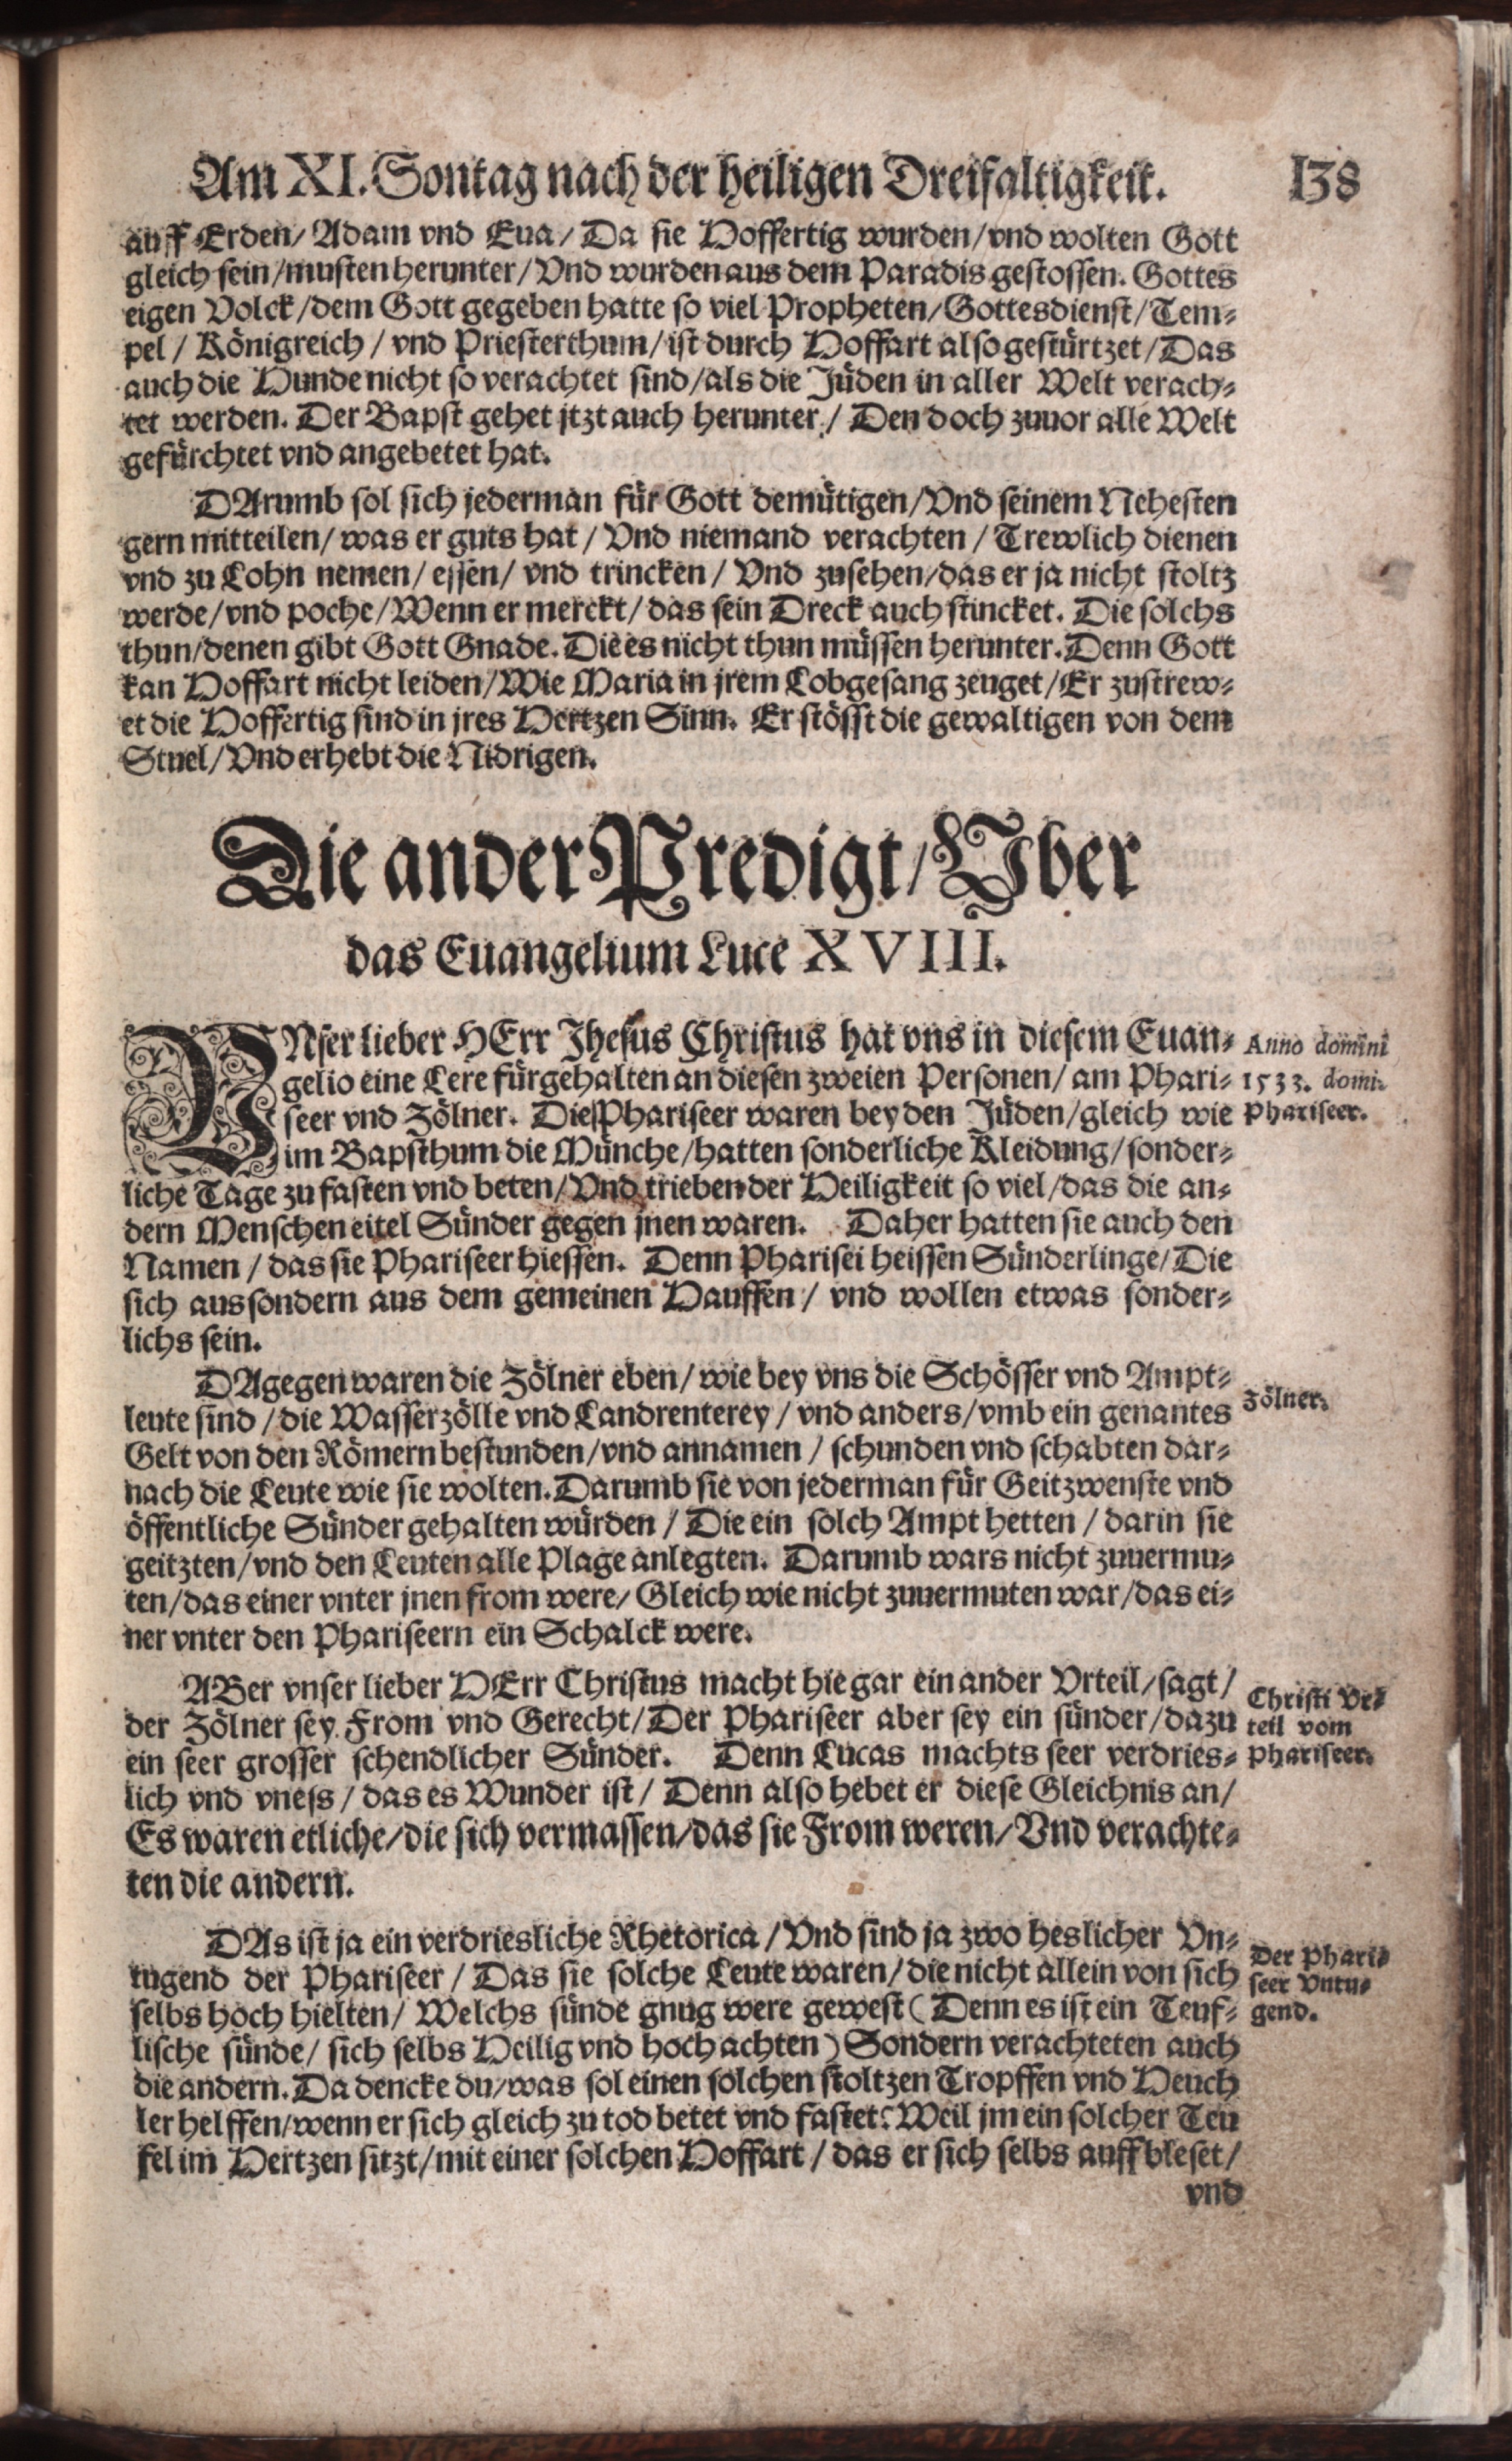 Am XI. Sontag nach der heiligen Dreifaltigkeit. 138
auff Erden/ Adam vnd Eua/ Da sie Hoffertig wurden/ vnd wolten Gott
gleich sein/ musten herunter/ Vnd wurden aus dem Paradis gestossen. Gottes
eigen Volck/ dem Gott gegeben hatte so viel Propheten/ Gottesdienst/ Tem-
pel/ Königreich/ vnd Priesterthum/ ist durch Hoffart also gestürtzet/ Das
auch die Hunde nicht so verachtet sind/ als die Jüden in aller Welt verach-
tet werden. Der Bapst gehet jtzt auch herunter/ Den doch zuuor alle Welt
gefürchtet vnd angebetet hat.
DArumb sol sich jederman für Gott demütigen/ Vnd seinem Nehesten
gern mitteilen/ was er guts hat/ Vnd niemand verachten/ Trewlich dienen
vnd zu Lohn nemen/ essen/ vnd trincken/ Vnd zusehen/ das er ja nicht stoltz
werde/ vnd poche/ Wenn er merckt/ das sein Dreck auch stincket. Die solchs
thun/ denen gibt Gott Gnade. Die es nicht thun müssen herunter. Denn Gott
kan Hoffart nicht leiden/ Wie Maria in jrem Lobgesang zeuget/ Er zustrew-
et die Hoffertig sind in jres Hertzen Sinn. Er stösst die gewaltigen von dem
Stuel/ Vnd erhebt die Nidrigen.
Die ander Predigt/ Vber
das Euangelium Luce XVIII.
VNser lieber HErr Jhesus Christus hat vns in diesem Euan-
gelio eine Lere fürgehalten an diesen zweien Personen/ am Phari-
seer vnd Zölner. Die Phariseer waren bey den Jüden/ gleich wie
im Bapsthum die Münche/ hatten sonderliche Kleidung/ sonder-
liche Tage zu fasten vnd beten/ Vnd trieben der Heiligkeit so viel/ das die an-
dern Menschen eitel Sünder gegen jnen waren. Daher hatten sie auch den
Namen/ das sie Phariseer hiessen. Denn Pharisei heissen Sünderlinge/ Die
sich aussondern aus dem gemeinen Hauffen/ vnd wollen etwas sonder-
lichs sein.
Anno domini
1533. domi.
Phariseer.
DAgegen waren die Zölner eben/ wie bey vns die Schösser vnd Ampt-
leute sind/ die Wasserzölle vnd Landrenterey/ vnd anders/ vmb ein genantes
Gelt von den Römern bestunden/ vnd annamen/ schunden vnd schabten dar-
nach die Leute wie sie wolten. Darumb sie von jederman für Geitzwenste vnd
öffentliche Sünder gehalten würden/ Die ein solch Ampt hetten/ darin sie
geitzten/ vnd den Leuten alle Plage anlegten. Darumb wars nicht zuuermu-
ten/ das einer vnter jnen from were/ Gleich wie nicht zuuermuten war/ das ei-
ner vnter den Phariseern ein Schalck were.
Zölner.
ABer vnser lieber HErr Christus macht hie gar ein ander Vrteil/ sagt/
der Zölner sey From vnd Gerecht/ Der Phariseer aber sey ein sünder/ dazu
ein seer grosser schendlicher Sünder. Denn Lucas machts seer verdries-
lich vnd vness/ das es Wunder ist/ Denn also hebet er diese Gleichnis an/
Es waren etliche/ die sich vermassen/ das sie From weren/ Vnd verachte-
ten die andern.
Christi Vr-
teil vom
Phariseer.
DAs ist ja ein verdriesliche Rhetorica/ Vnd sind ja zwo heslicher Vn-
tugend der Phariseer/ Das sie solche Leute waren/ die nicht allein von sich
selbs hoch hielten/ Welchs sünde gnug were gewest (Denn es ist ein Teuf-
lische sünde/ sich selbs Heilig vnd hoch achten) Sondern verachteten auch
die andern. Da dencke du/ was sol einen solchen stoltzen Tropffen vnd Heuch
ler helffen/ wenn er sich gleich zu tod betet vnd fastet? Weil jm ein solcher Teu
fel im Hertzen sitzt/ mit einer solchen Hoffart/ das er sich selbs auffbleset/
vnd
Der Phari-
seer Vntu-
gend.